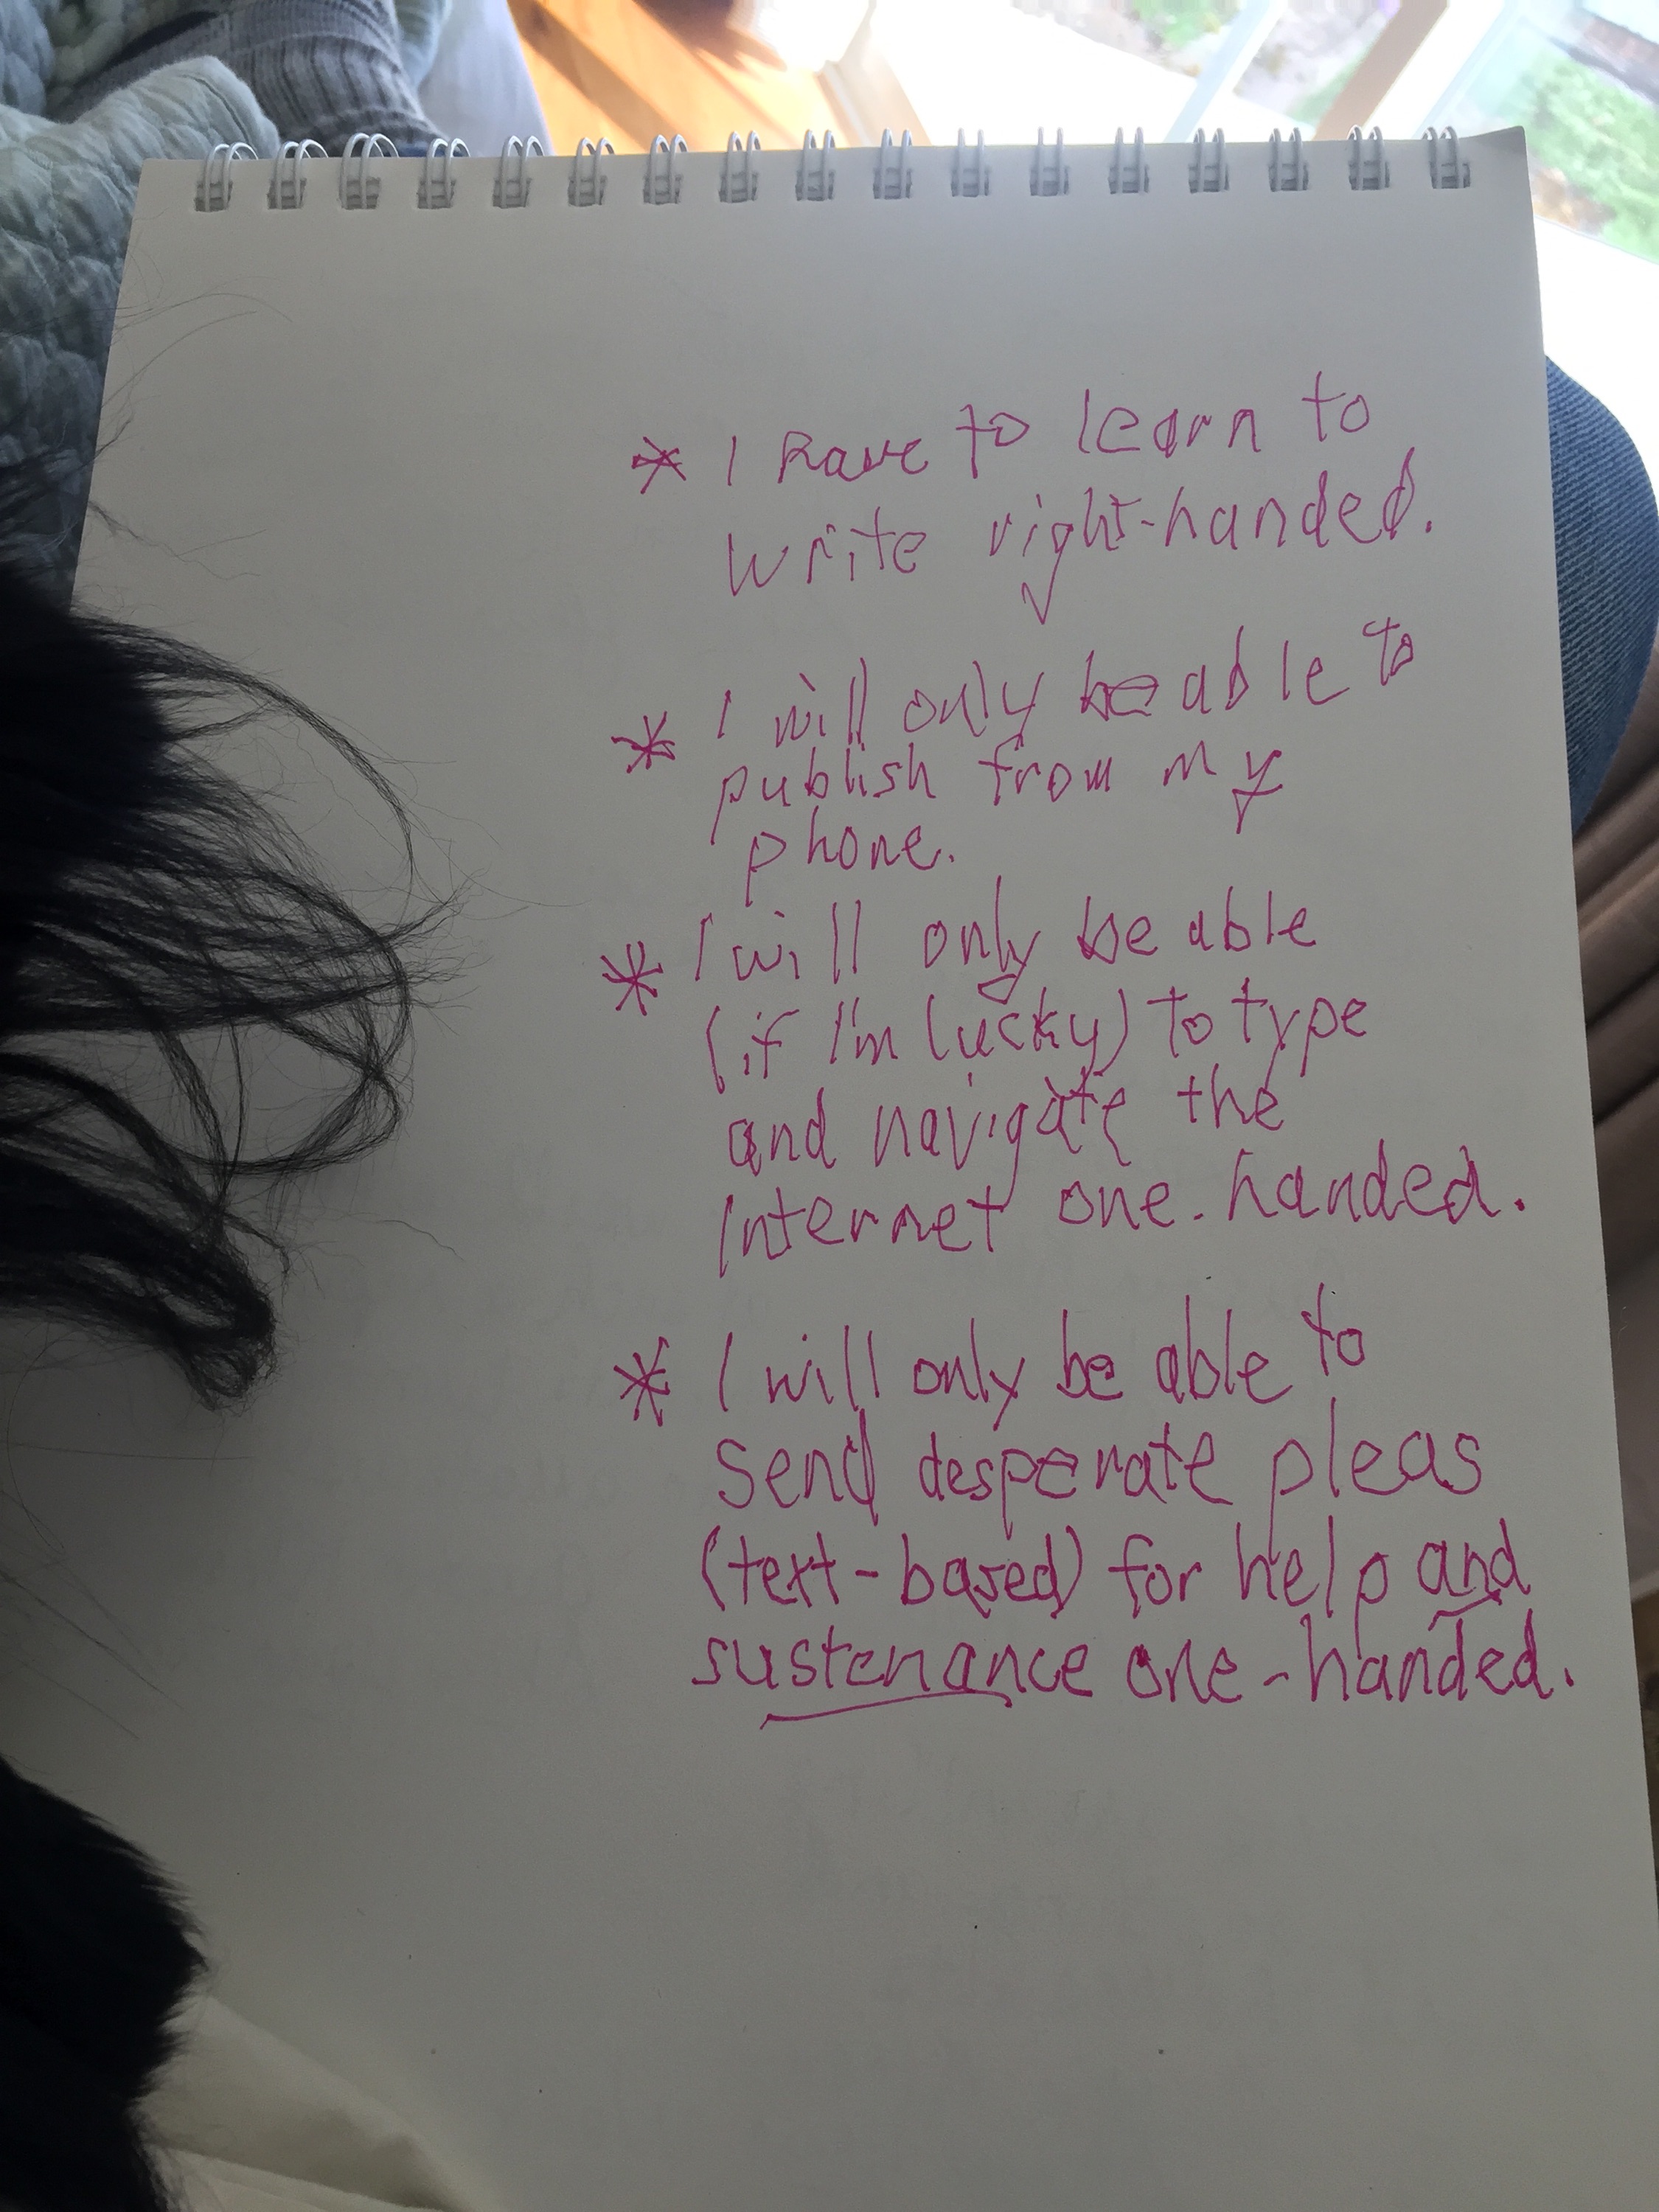 * I have to learn to
write right-handed.
* I will only be able to
publish from my
phone.
* I will only be able
(if I'm lucky) to type
and navigate the
Internet one-handed.
* I will only be able to
send desperate pleas
(text-based) for help and
sustenance one-handed.